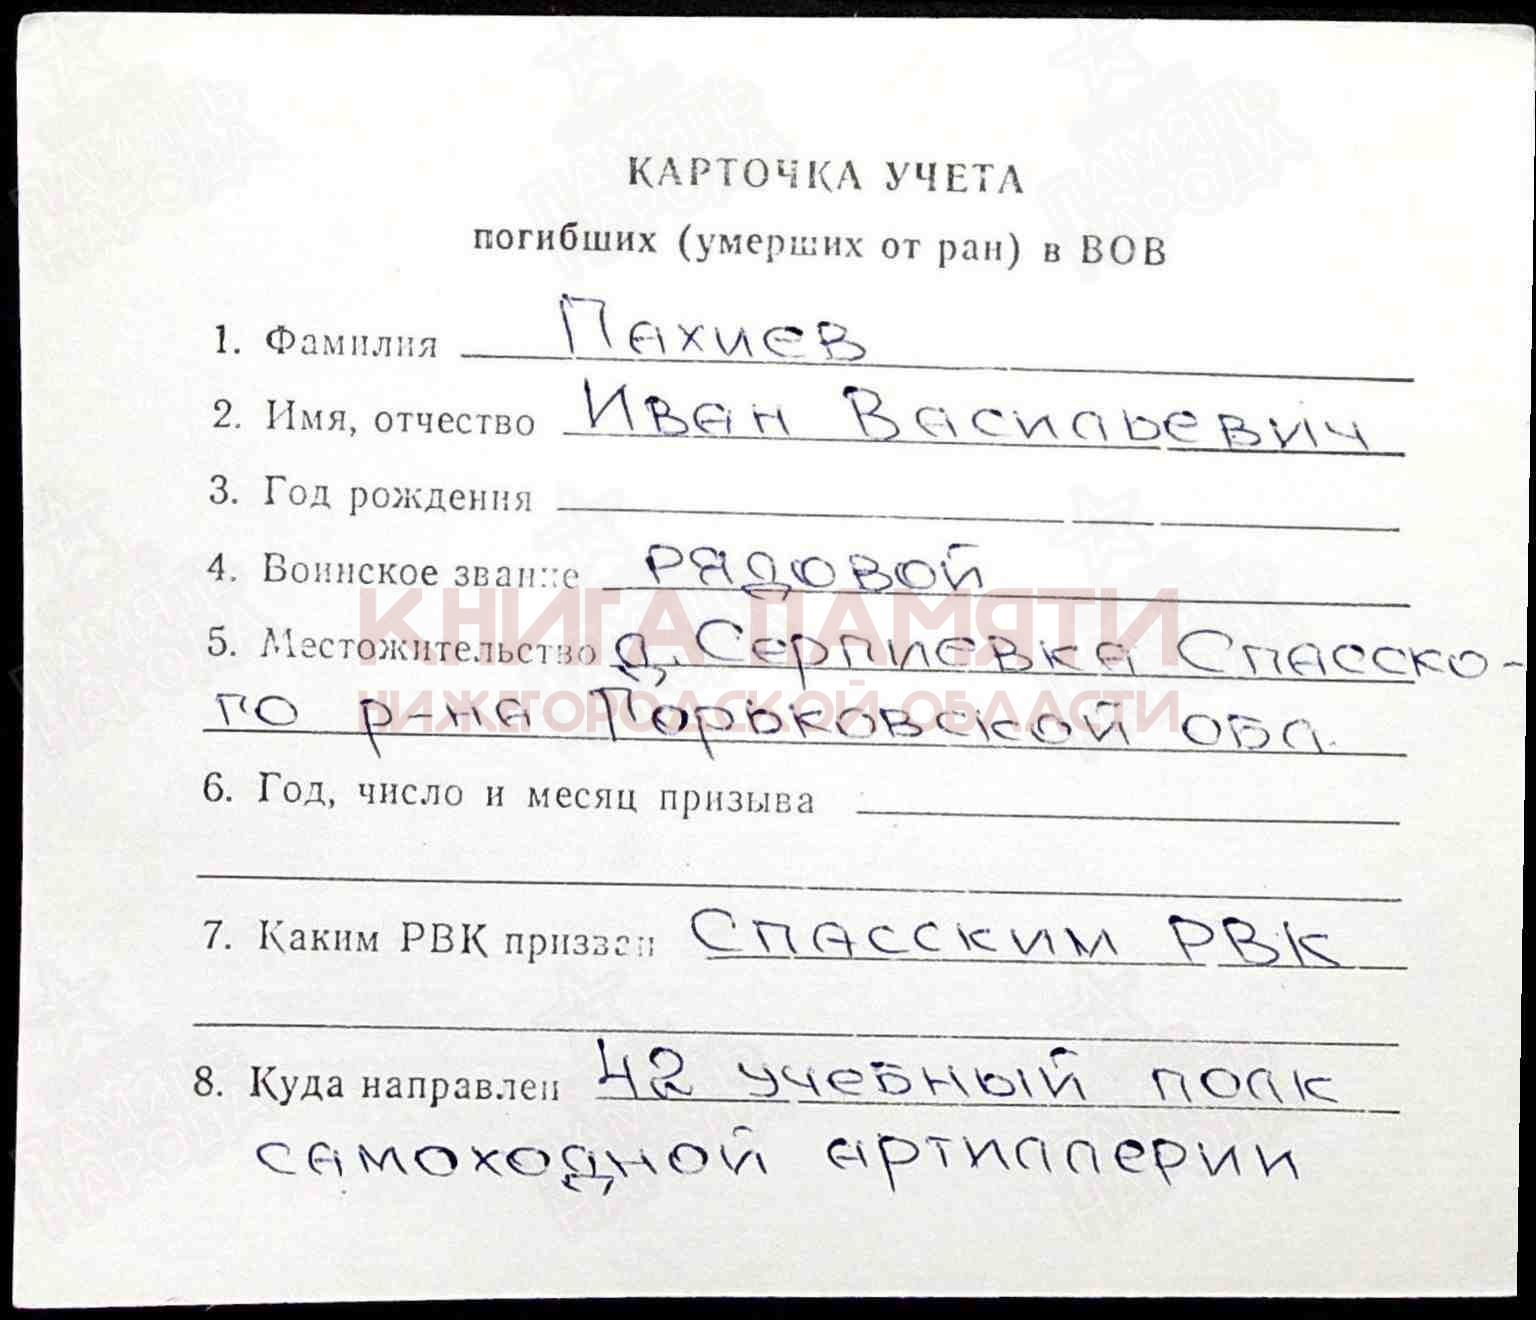 КАРТОЧКА УЧЕТА
погибших (умерших от ран) в ВОВ
1. Фамилия Пахиев
2. Имя, отчество Иван Васильевич
3. Год рождения
4. Воинское звание рядовой
КНИГА ПАМЯТИ
5. Местожительство д. Серплевка Спасско-
НИЖЕГОРОДСКОЙ ОБЛАСТИ
го р-на Горьковской обл.
6. Год, число и месяц призыва
7. Каким РВК призван Спасским РВК
8. Куда направлен 42 учебный полк
самоходной артиллерии
ПАМЯТЬ НАРОДА